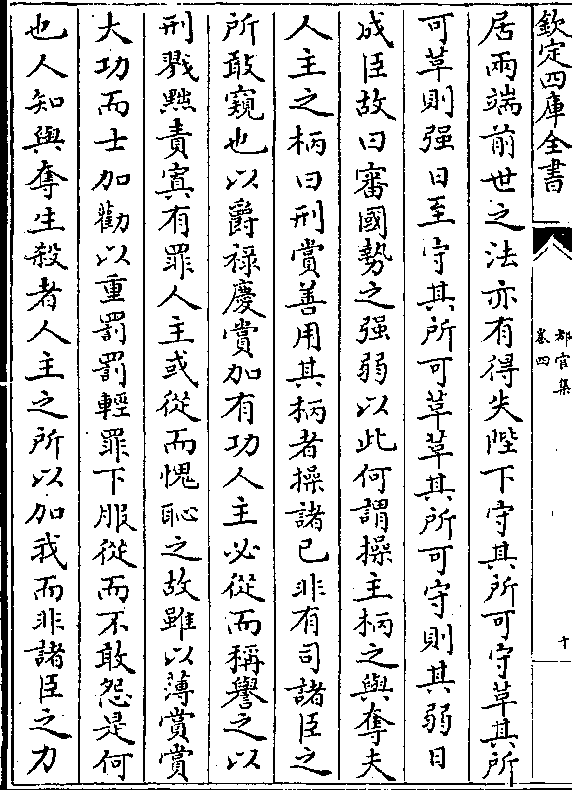 欽定四庫全書
都官集
卷四
十
居兩端前世之法亦有得失陛下守其所可守革其所
可革則强日至守其所可革革其所可守則其弱日
成臣故曰審國勢之强弱以此何謂操主柄之與奪夫
人主之柄曰刑賞善用其柄者操諸已非有司諸臣之
所敢窺也以爵禄慶賞加有功人主必從而稱譽之以
刑戮黜責寘有罪人主或從而愧恥之故雖以薄賞賞
大功而士加勸以重罰罰輕罪下服從而不敢怨是何
也人知與奪生殺者人主之所以加我而非諸臣之力